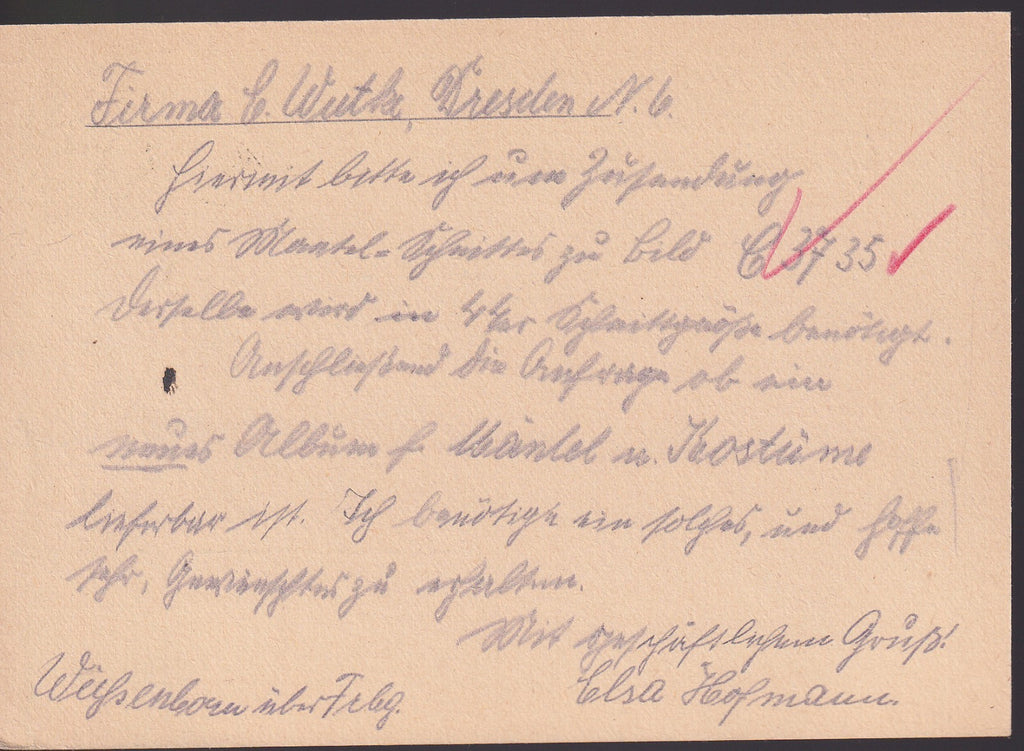 Firma C. Wutke, Dresden N. 6.
Hiermit bitte ich um Zusendung
eines Mantel-Schnittes zu Bild C 3735
Derselbe wird in 44er Schnittgröße benötigt.
Anschließend die Anfrage ob ein
neues Album f. Mäntel u. Kostüme
lieferbar ist. Ich benötige ein solches, und hoffe
sehr, Gewünschtes zu erhalten.
Mit geschäftlichem Gruß!
Elsa Hofmann.
über Frbg.